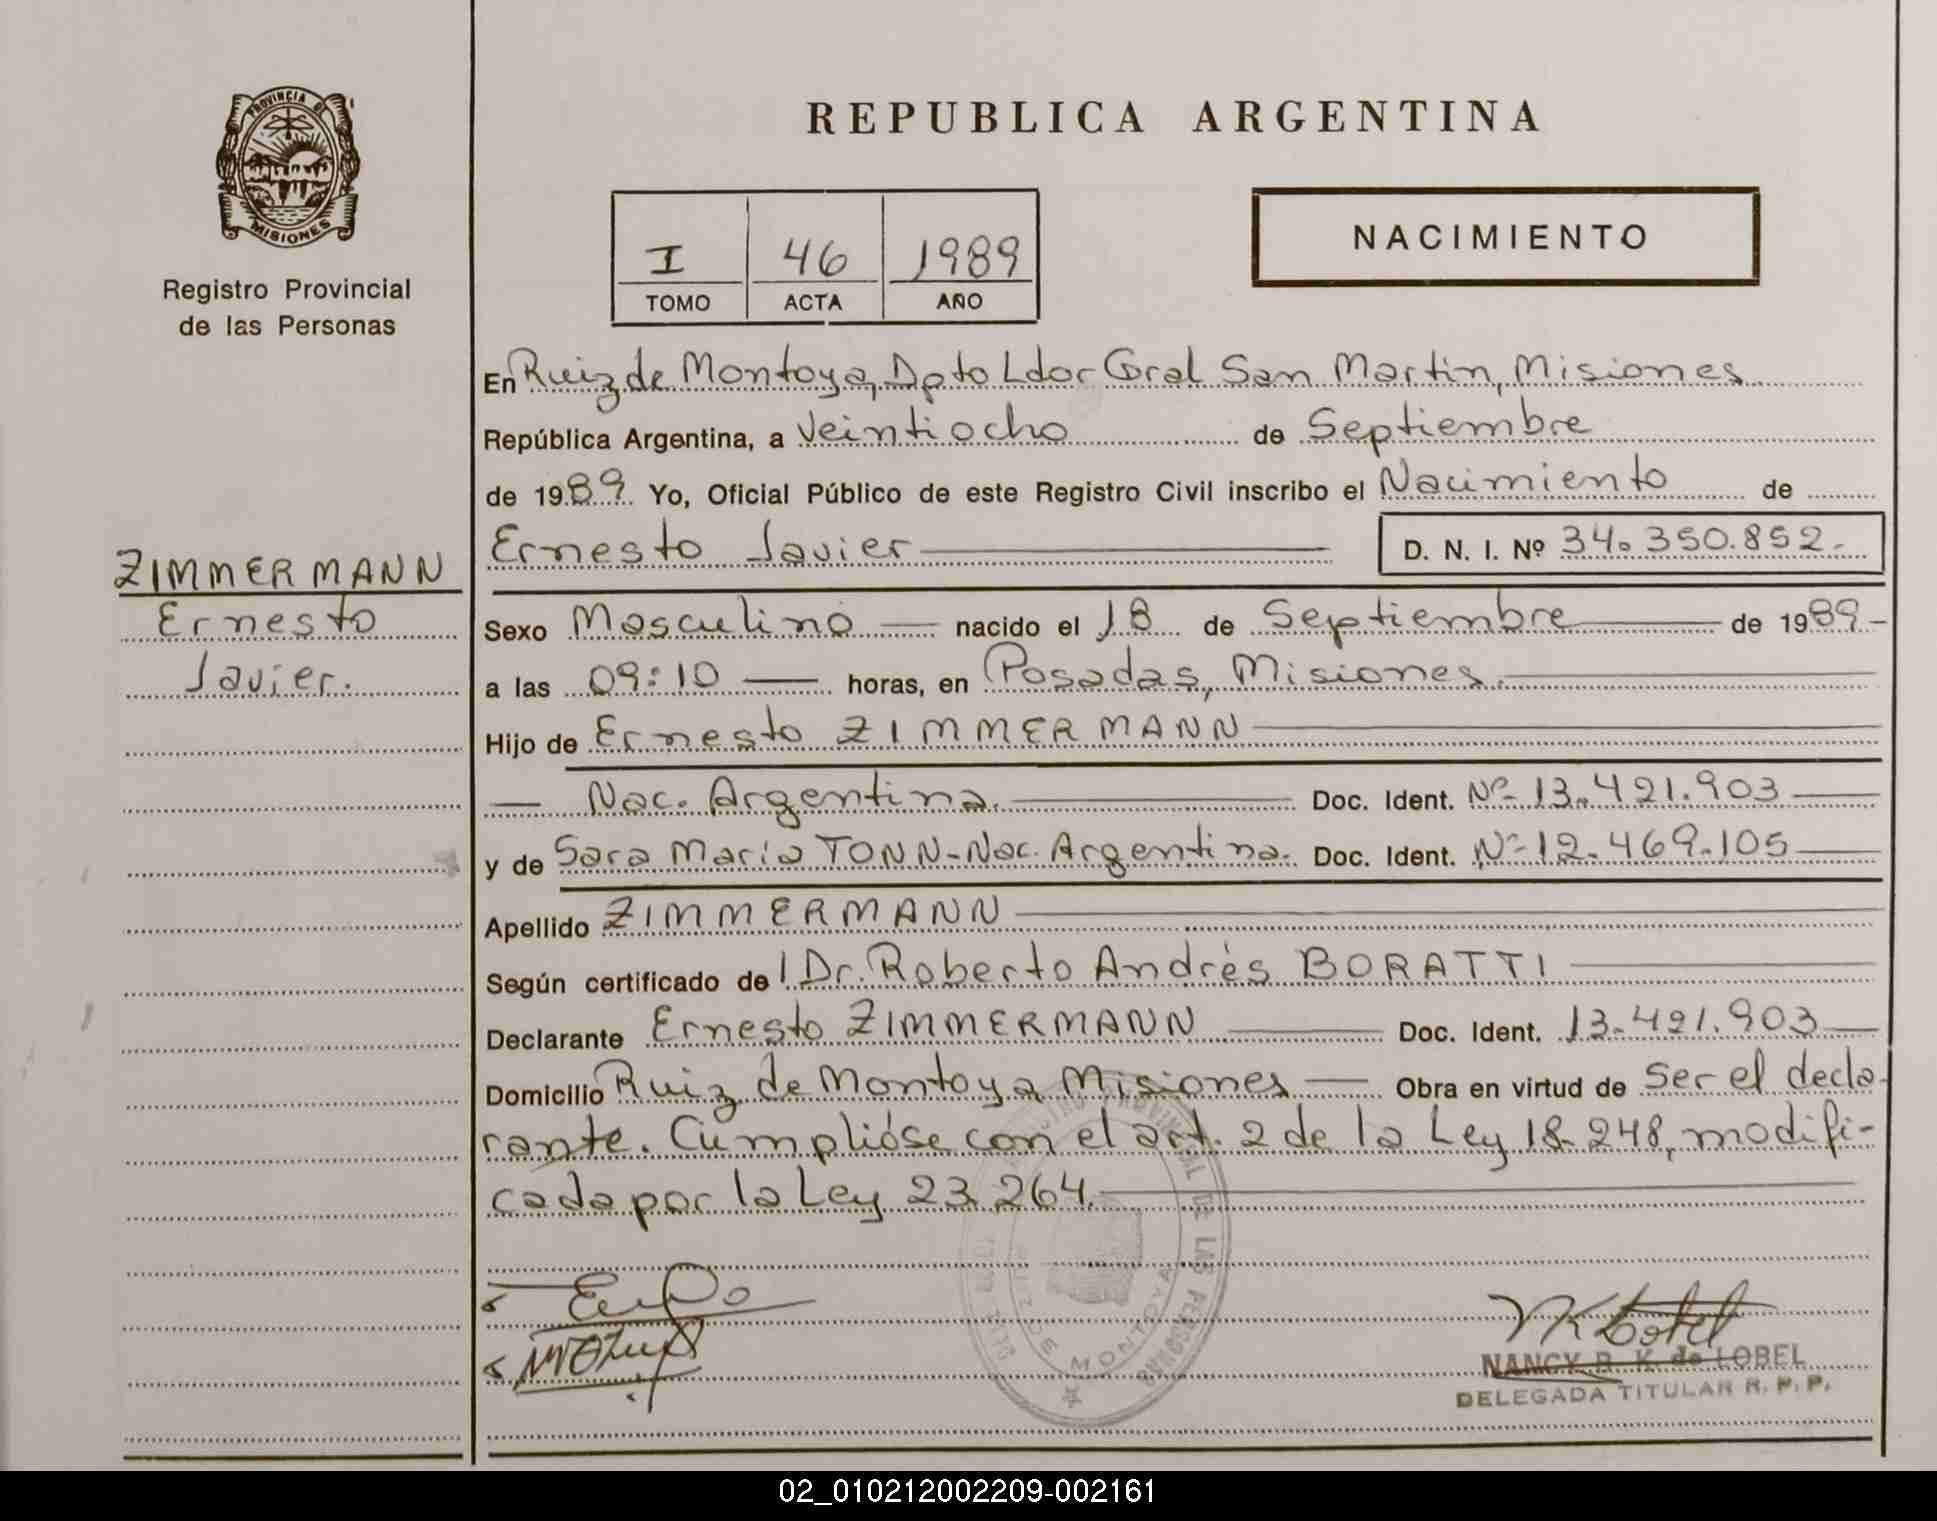 PROVINCIA DE
MISIONES
Registro Provincial
de las Personas
REPUBLICA ARGENTINA
I 46 1989
TOMO ACTA AÑO
NACIMIENTO
En Ruiz de Montoya, Dpto Ldor Gral San Martin, Misiones
República Argentina, a Veintiocho de Septiembre
de 1989. Yo, Oficial Público de este Registro Civil inscribo el Nacimiento de
Ernesto Javier
D. N. I. Nº 34.350.852.-
ZIMMERMANN
Ernesto
Javier.
Sexo Masculino nacido el 18 de Septiembre de 1989-
a las 09:10 horas, en Posadas, Misiones.
Hijo de Ernesto ZIMMERMANN
Nac. Argentina. Doc. Ident. Nº 13.421.903
y de Sara María TONN-Nac. Argentina. Doc. Ident. Nº 12.469.105
Apellido ZIMMERMANN
Según certificado de l Dr. Roberto Andrés BORATTI
Declarante Ernesto ZIMMERMANN Doc. Ident. 13.421.903
Domicilio Ruiz de Montoya Misiones Obra en virtud de ser el decla-
rante. Cumplióse con el art. 2 de la Ley 18.248, modifi-
cada por la Ley 23.264.
REGISTRO PROVINCIAL DE LAS PERSONAS
RUIZ DE MONTOYA
NANCY R. K. de LOBEL
DELEGADA TITULAR R. P. P.
02_010212002209-002161